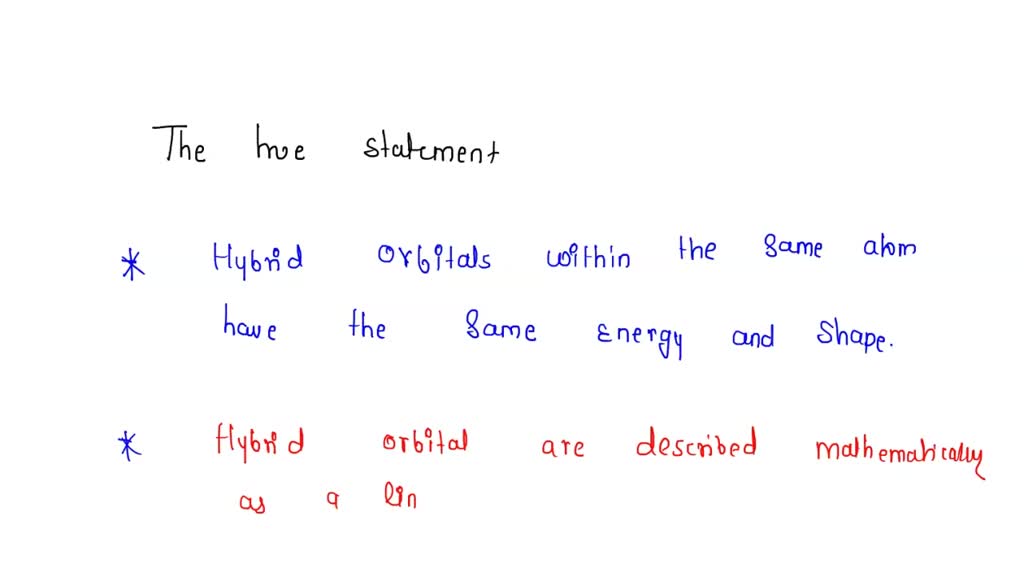 The true statement
* Hybrid orbitals within the same atom
have the same energy and shape.
* Hybrid orbital are described mathematically
as a lin